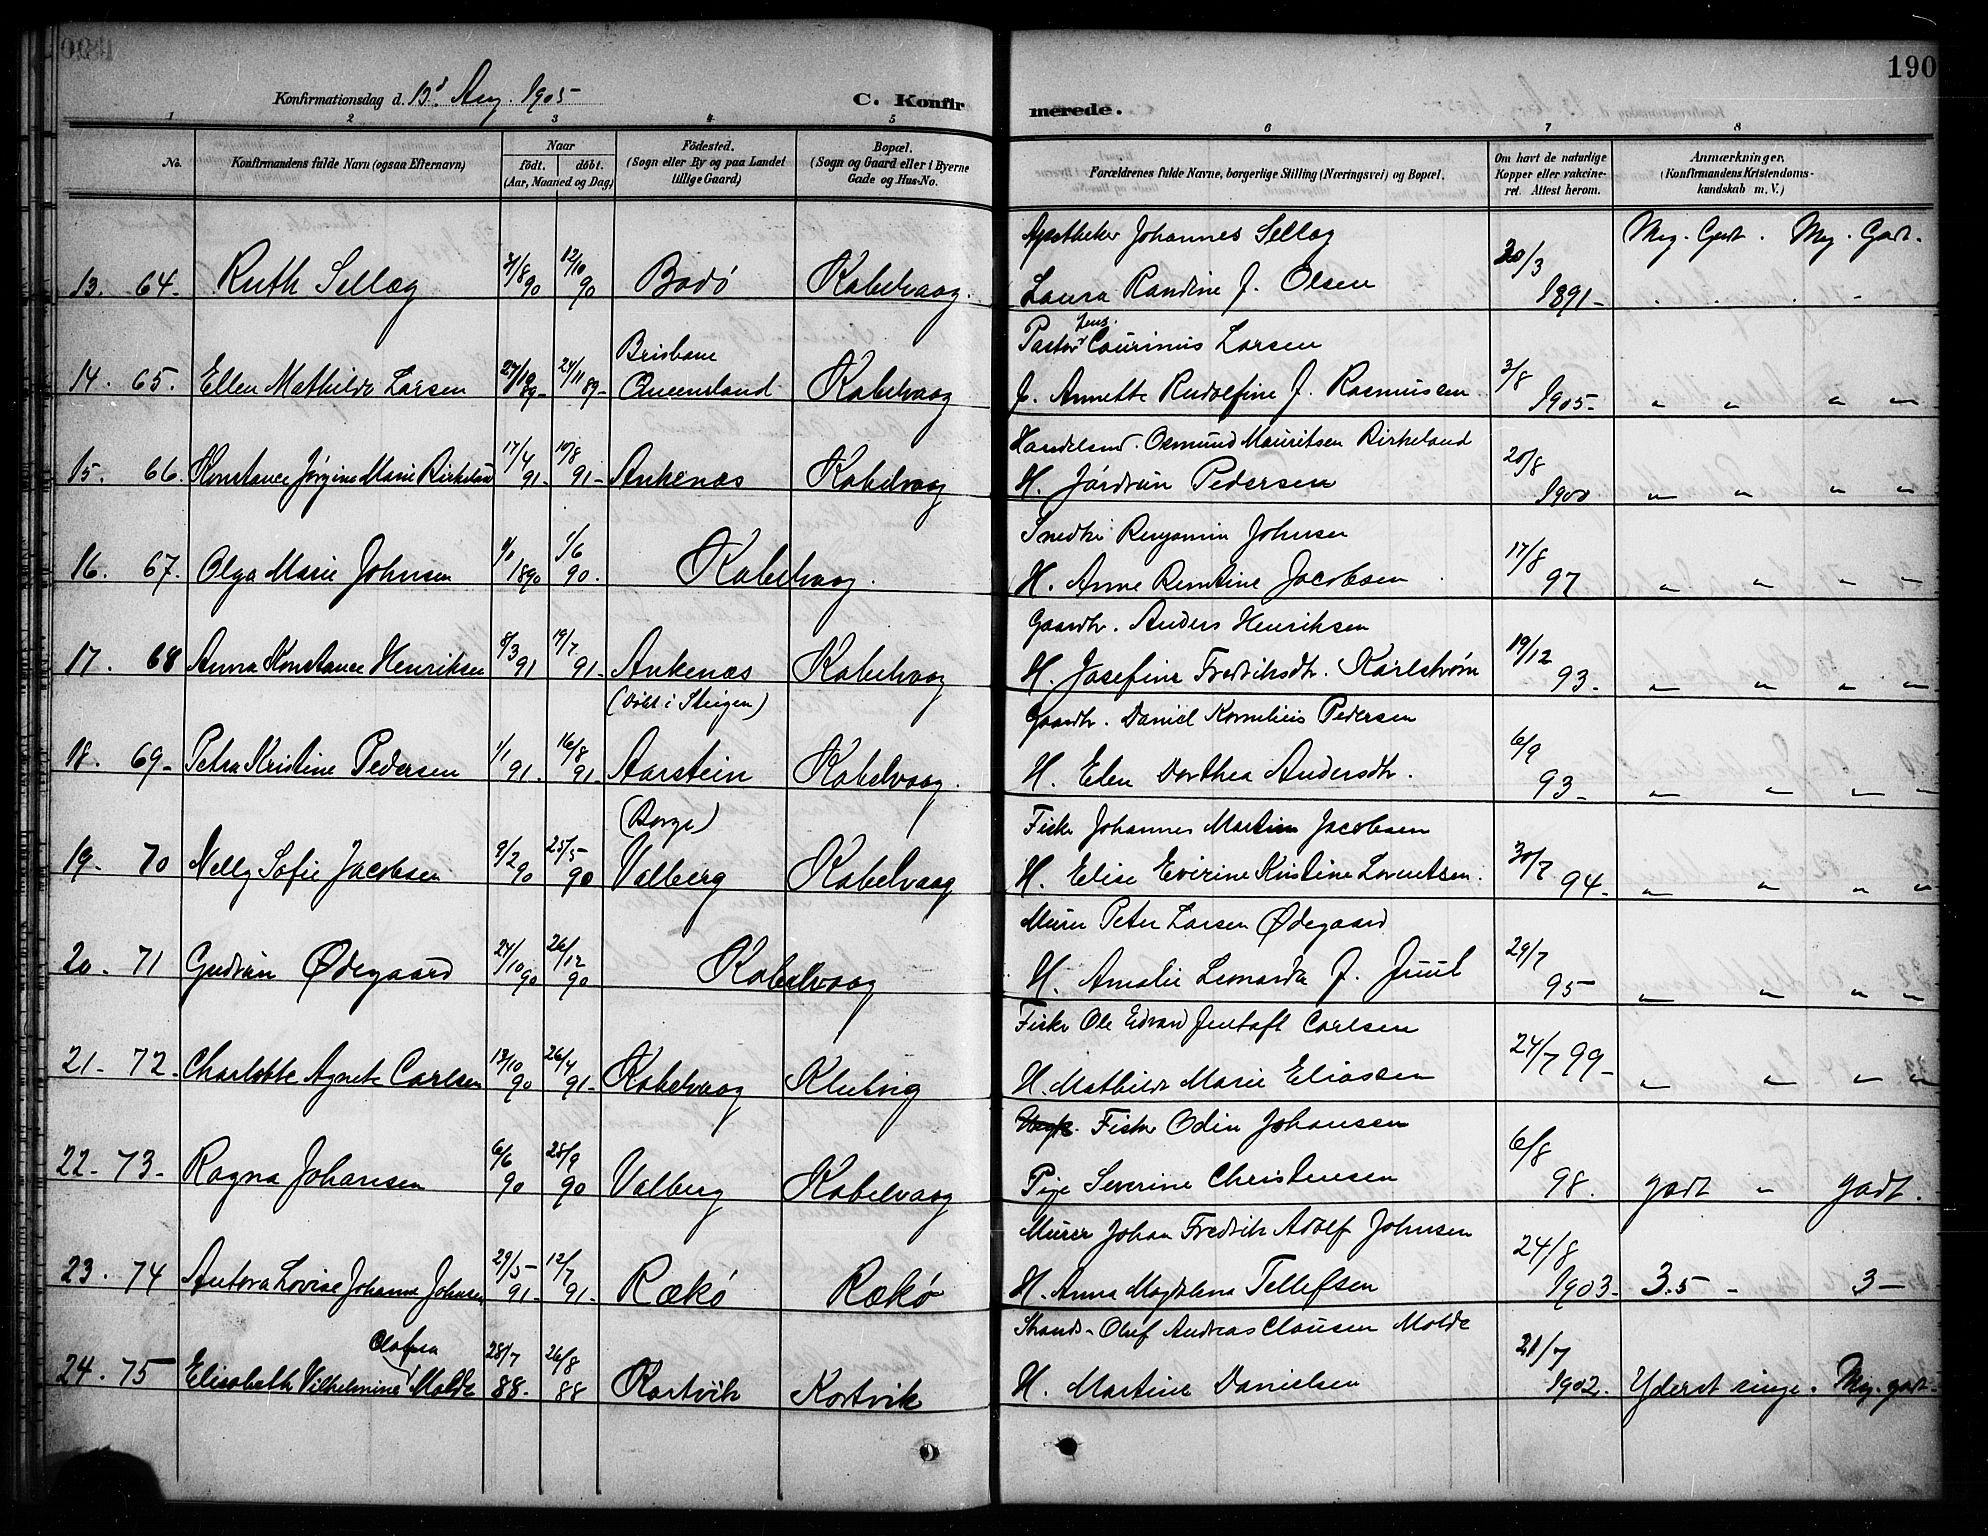 190
Konfirmationsdag d. 13d Aug. 1905
C. Konfirmerede.
1 2 3 4 5 6 7 8
No.
Konfirmandens fulde Navn (ogsaa Efternavn)
Naar
født. døbt.
(Aar, Maaned og Dag)
Fødested.
(Sogn eller By og paa Landet
tillige Gaard)
Bopæl.
(Sogn og Gaard eller i Byerne
Gade og Hus-No.
Forældrenes fulde Navne, borgerlige Stilling (Næringsvei) og Bopæl.
Om havt de naturlige
Kopper eller vakcine-
ret. Attest herom.
Anmærkninger.
(Konfirmandens Kristendoms-
kundskab m. V.)
Apotheker Johannes Sellæg Meg. Godt. Meg. Godt.
13. 64. Ruth Sellæg 31/8 90 12/10 90 Bodø Kabelvaag. Laura Randine f. Olsen 20/3 1891-
Pastor Jens Laurinius Larsen
14. 65. Ellen Mathilde Larsen 27/10 89- 24/11 89- Brisbane Queensland Kabelvaag f. Annette Rudolfine f. Rasmussen 3/8 1905- " " " "
Handelsmd. Osmund Mauritsen Birkeland
15. 66. Konstance Jørgine Marie Birkeland 17/4 91- 10/8 91- Ankenæs Kabelvaag H. Jórdrun Pedersen 20/8 1900 " " " "
Snedker Benjamin Johnsen
16. 67. Olga Marie Johnsen 1/1 1890 1/6 90. Kabelvaag. H. Anne Berntine Jacobsen 17/8 97 " " " "
Gaardbr. Anders Henriksen
17. 68 Anna Konstance Henriksen 8/3 91 19/7 91- Ankenæs Kabelvaag H. Josefine Fredriksdtr. Karlstrøm 19/12 93. " " " "
(døbt i Steigen)
Gaardbr. Daniel Kornelius Pedersen
18. 69- Petra Kristine Pedersen 1/1 91. 16/8 91 Aarstein Kabelvaag. H. Elen Dorthea Andersdtr. 6/9 93- " " " "
(Borge)
Fisker Johannes Martin Jacobsen
19. 70 Nelly Sofie Jacobsen 9/2 90 25/5 90 Valberg Kabelvaag H. Elise Evirine Kristine Lorentsen. 30/7 94- " " " "
Murer Peter Larsen Ødegaard
20. 71 Gudrun Ødegaard 24/10 90 26/12 90 Kabelvaag H. Amalie Leonarda f. Juul 29/7 95- " " " "
Fisker Ole Edvard Jentoft Carlsen
21- 72. Charlotte Agnete Carlsen 13/10 90 26/4 91- Kabelvaag H. Mathilde Marie Eliassen 24/7 99- " " " "
Fisker Odin Johansen
22- 73- Ragna Johansen 6/6 90 28/9 90 Valberg Kabelvaag Pige Severine Christensen 6/8 98. godt " godt.
Murer Johan Fredrik Adolf Johnsen
23. 74 Antora Lovise Johanne Johnsen 29/5 91- 12/7 91- Rækø Rækø H. Anna Magdalena Tellefsen 24/8 1903- 3.5 - 3-
Strands- Oluf Andreas Clausen Molde
24. 75 Elisabeth Vilhelmine Olafsea Molde 28/7 88. 26/8 88 Kartvik Kortvik H. Martine Danielsen 21/7 1902. Yderst ringe. Meg. godt-